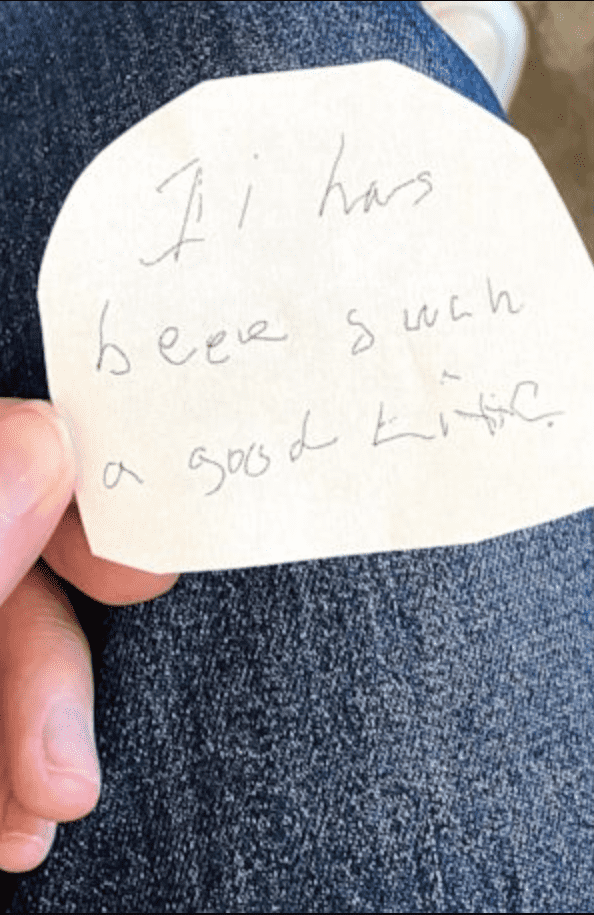 It i has
beee such
a good